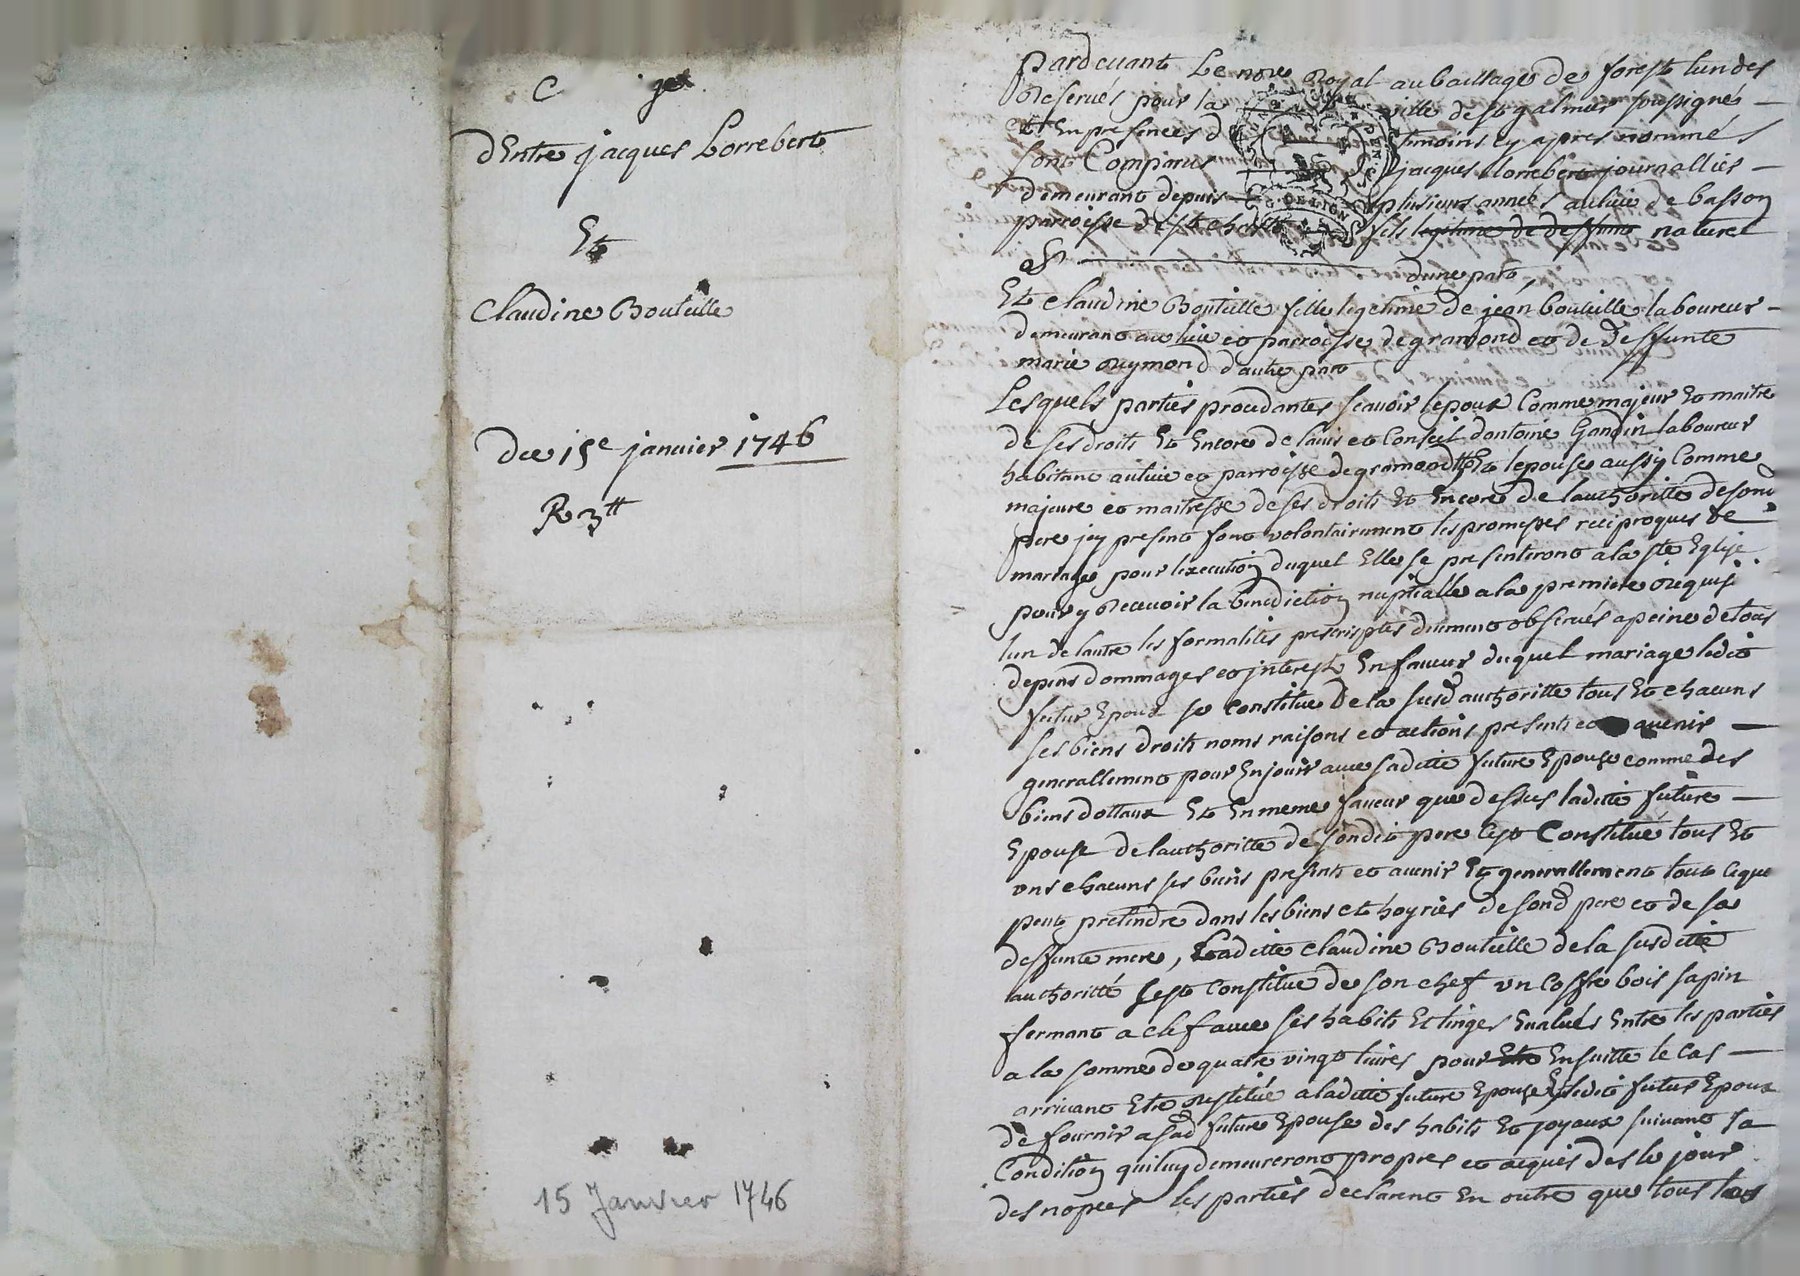 dEntre jacques Lorrebert
Et
Claudine Bouteille
Du 15e janvier 1746
R 3tt
15 Janvier 1746
pardevant Le nore Royal au baillage de forest lun des
Reservés pour la ville de st galmier soussignés
Et En presences de témoins cy apres nommés
sont Comparus jacques Lorrebert journallier
demeurant depuis plusieurs années au lieu de basson
parroisse de fils legitime de deffunt naturel
dune part
Et Claudine Bouteille fille legitime de jean bouteille laboureur
demeurant au lieu et parroisse de gramond et de deffunte
marie Reymond d'autre part
Lesquels parties procedantes scavoir lepoux Comme majeur Et maitre
de ses droits Et Encore de lavis et Conseil dantoine Gandin laboureur
habitant au lieu et parroisse de gramond Et lepouse aussy Comme
majeure et maitresse de ses droits Et Encore de lauthoritte de son
pere jcy present font volontairement les promesses reciproques de
mariage pour lexecution duquel Elle se presenteront a la ste Eglise
pour y Recevoir la benediction nuptialle a la premiere Requise
lun de lautre les formalités prescriptes duement observés a peine de tous
depens dommages et jnterest En faveur duquel mariage ledit
futur Epoux se constitue de la susd authoritte tous Et chacuns
ses biens droits noms raisons et actions presents et avenir
generallement pour En jouir avec saditte future Epouse comme des
biens dottaux Et En meme faveur que dessus laditte future
Epouse de lauthoritte de sondit pere sest Constitué tous Et
uns chacuns ses biens presents et avenir Et generallement tout ceque
peut pretendre dans les biens et hoyries de sond pere et de sa
deffunte mere, Laditte Claudine Bouteille de la susditte
authoritté sest Constitue de son chef un Coffre bois sapin
fermant a clef avec ses habits Et linges Evalués Entre les parties
a la somme de quatre vingt livres pour Ensuitte le Cas
arrivant Etre Restitué a laditte future Epouse Et ledit futur Epoux
de fournir a sad future Epouse des habits Et joyaux suivant sa
Condition qui luy demeureront propres et acquis des le jour
des nopces les parties declarent En outre que tous les